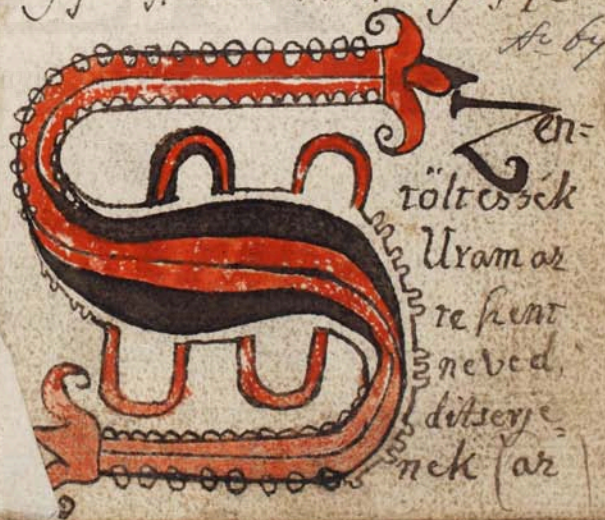 Szen=
töltessék
Uram az
te szent
neved,
ditserje=
nek (az